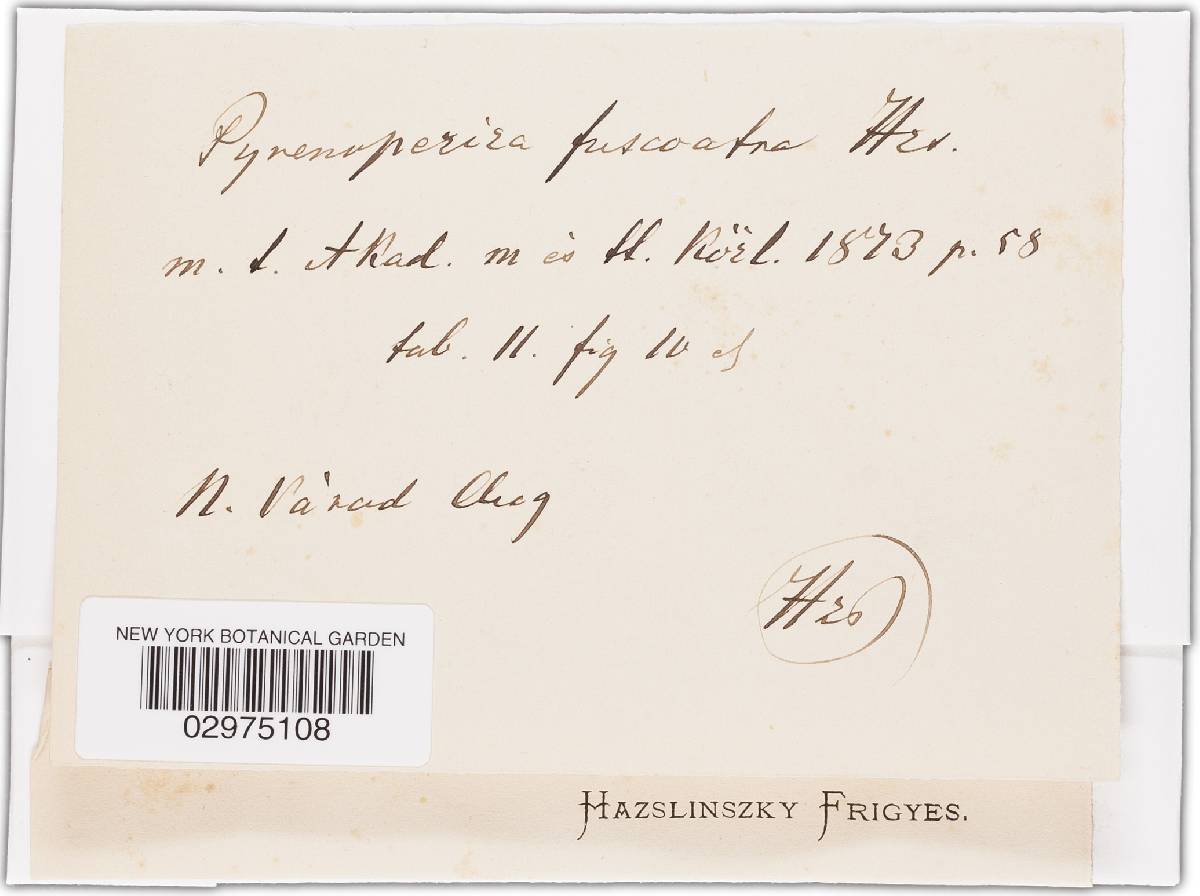 Pyrenopeziza fuscoatra Hzs.
m. t. Akad. m és tt. Közl. 1873 p. 58
tab. II. fig 10
N. Várad
Hzs
NEW YORK BOTANICAL GARDEN
02975108
HAZSLINSZKY FRIGYES.